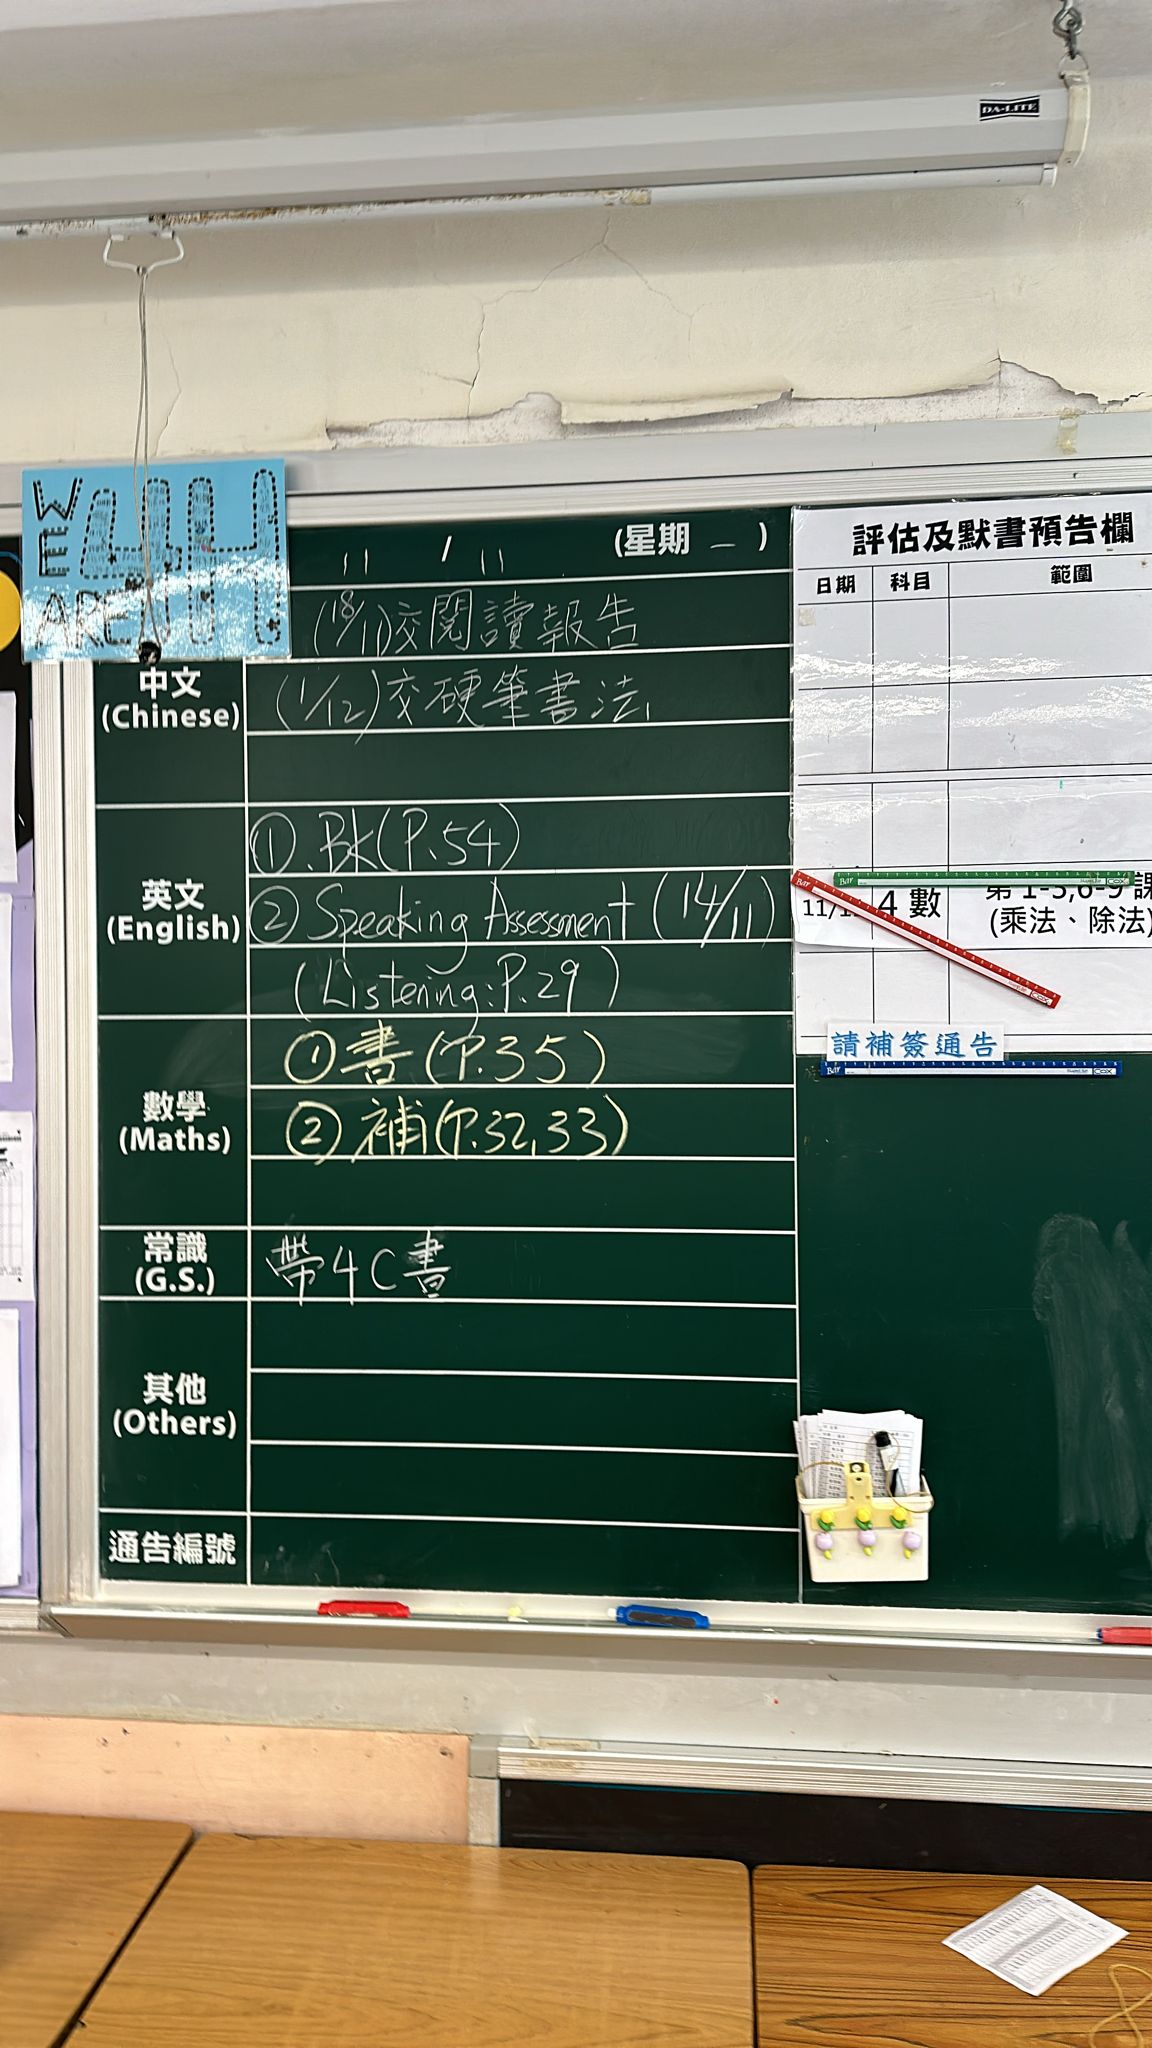 DA-LITE
WE
ARE
4H
11 / 11 (星期 一 )
(18/11)交閱讀報告
中文
(Chinese)
(1/12)交硬筆書法
英文
(English)
①.Bk(P.54)
② Speaking Assessment (14/11)
(Listening:P.29)
數學
(Maths)
①書(P.35)
②補(P.32,33)
常識
(G.S.)
帶4C書
其他
(Others)
通告編號
評估及默書預告欄
日期 科目 範圍
11/1 4 數 第 1-3,6-9 課
(乘法、除法)
請補簽通告